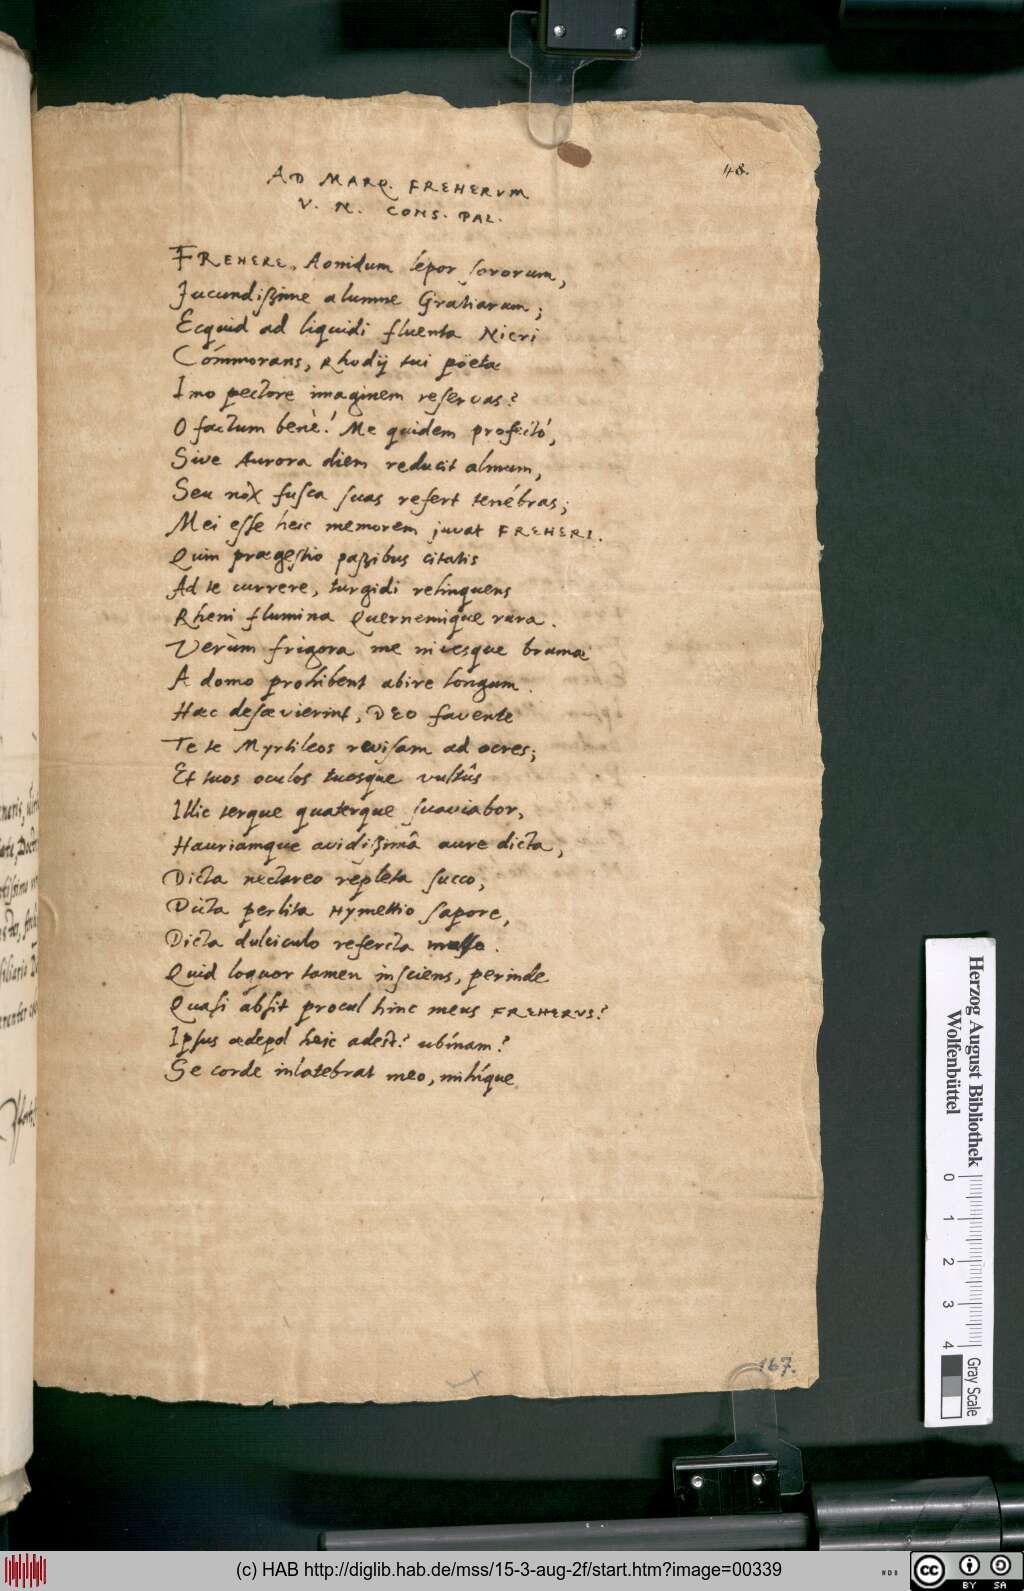 48.
AD MARQ. FREHERVM
V. N. CONS. PAL.
FREHERE, Aonidum lepor sororum,
Jucundißime alumne Gratiarum;
Ecquid ad liquidi fluenta Nicri
Cómmorans, Rhodij tui pöetæ
Imo pectore imaginem reservas?
O factum benè! Me quidem profectó,
Sive Aurora diem reducit almum,
Seu nox fusca suas refert tenébras;
Mei esse heic memorem juvat FREHERI.
Quin prægestio paßibus citatis
Ad te currere, turgidi relinquens
Rheni flumina Quernemique rura.
Verùm frigora me nivesque brumæ
A domo prohibent abire longam.
Hæc desævierint, DEO favente
Te te Myrtileos revisam ad ocres;
Et tuos oculos tuosque vultûs
Illic terque quaterque suaviabor,
Hauriamque avidißimâ aure dicta,
Dicta nectareo repleta succo,
Dicta perlita Hymettio sapore,
Dicta dulciculo referta mulso.
Quid loquor tamen insciens, perinde
Quasi absit procul hinc meus FREHERVS?
Ipsus ædepol heic adest? ubínam?
Se corde inlatebrat meo, mihíque
167.
Herzog August Bibliothek
Wolfenbüttel
0 1 2 3 4
Gray Scale
(c) HAB http://diglib.hab.de/mss/15-3-aug-2f/start.htm?image=00339
cc BY SA